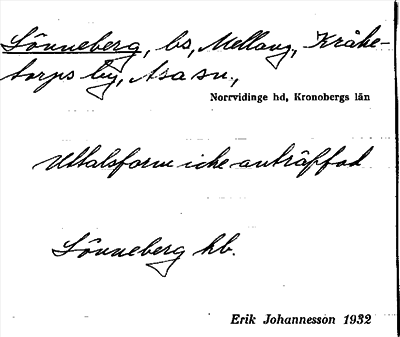 Lönneberg, bs, Mellang, Kråke-
torps by, Asa sn.,
Norrvidinge hd, Kronobergs län
Uttalsform icke anträffad
Lönneberg hb.
Erik Johannesson 1932